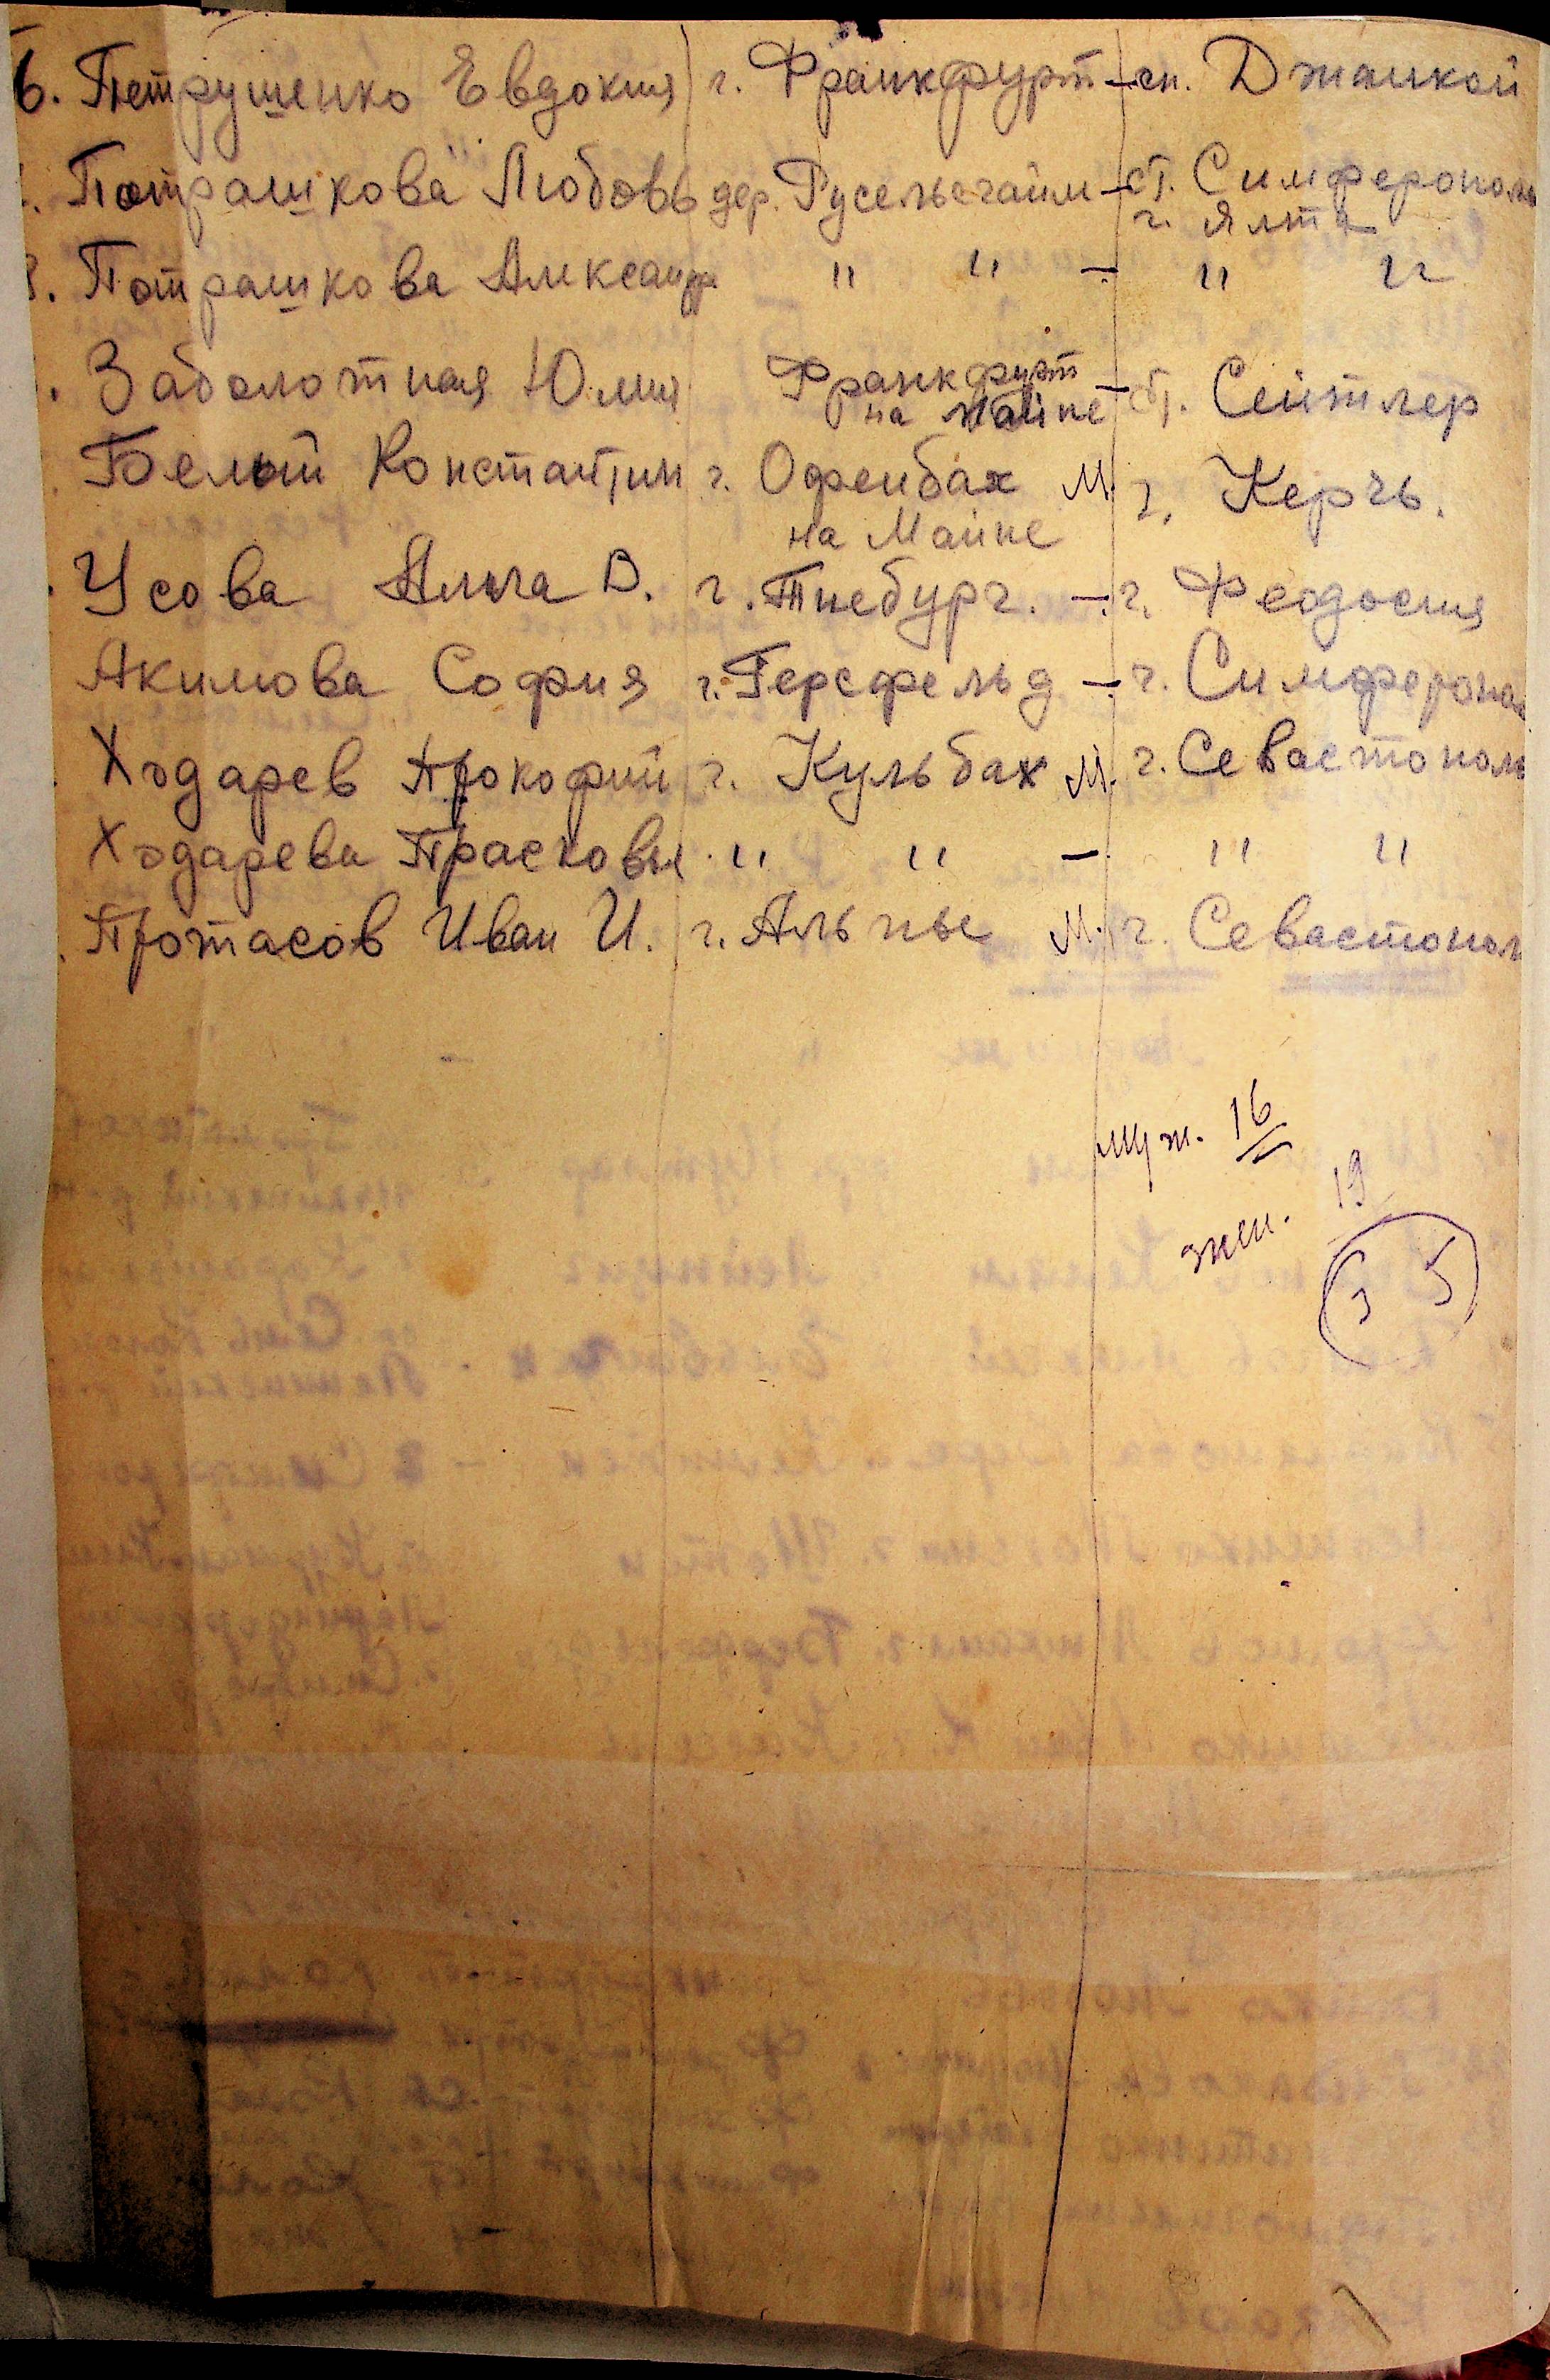 6. Петрушенко Евдокия г. Франкфурт - сп. Джанкой
Потрашкова Любовь дер. Русельсгайм - ст. Симферополь
г. Ялта
Потрашкова Александра " " - " "
Заболотная Юлия Франкфурт - ст. Сейтлер
на Майне
Белый Константин г. Офенбах М. г. Керчь.
на Майне
Усова Анна В. г. Тнебург. - г. Феодосия
Акимова София г. Герсфельд - г. Симферопол
Ходарев Прокофий г. Кульбах М. г. Севастополь
Ходарева Прасковья " " - " "
Протасов Иван И. г. М. г. Севастопол
муж. 16
жен. 19
35